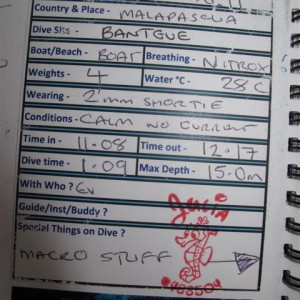 Country & Place - MALAPASCUA
Dive Site - BANTGUE
Boat/Beach - BOAT Breathing - NITROX
Weights - 4 Water °C - 28C
Wearing - 2mm SHORTIE
Conditions - CALM NO CURRENT
Time in - 11-08 Time out - 12-17
Dive time - 1-09 Max Depth - 15.0m
With Who ? Ev
Guide/Inst/Buddy ?
Special Things on Dive ?
MACRO STUFF